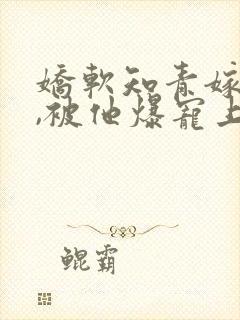 嬌軟知青嫁
,被他爆寵上
鲲霸